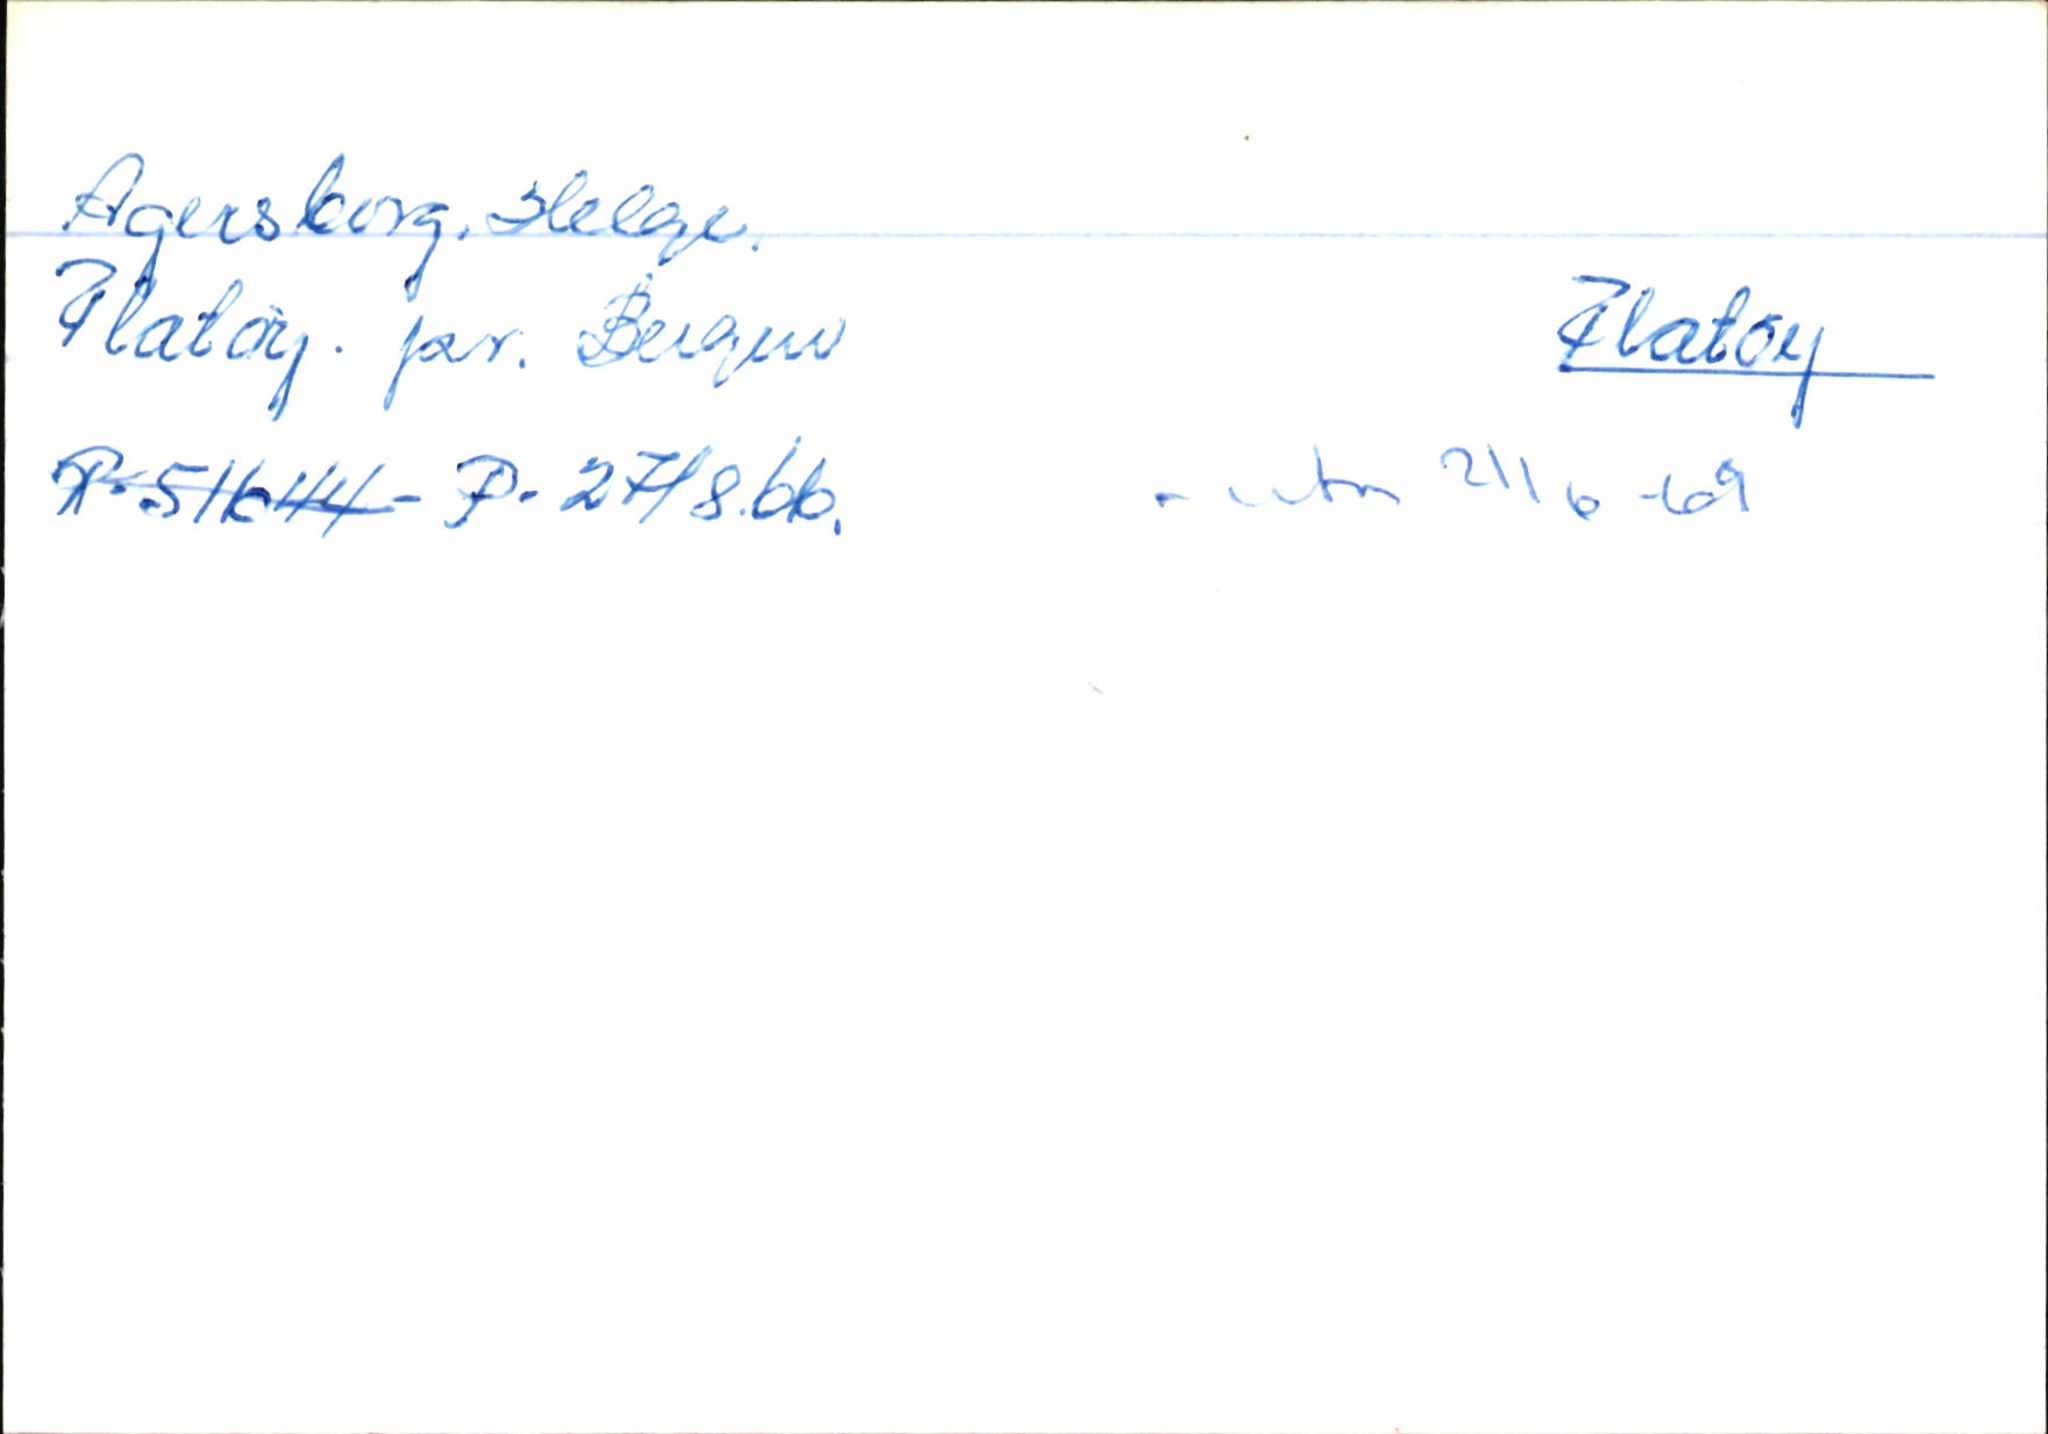 Agersborg, Helge.
Flatøy. pr. Bergen
Flatøy
P. 5/6 44 - P. 27/8.66.
- utm 21/6-69